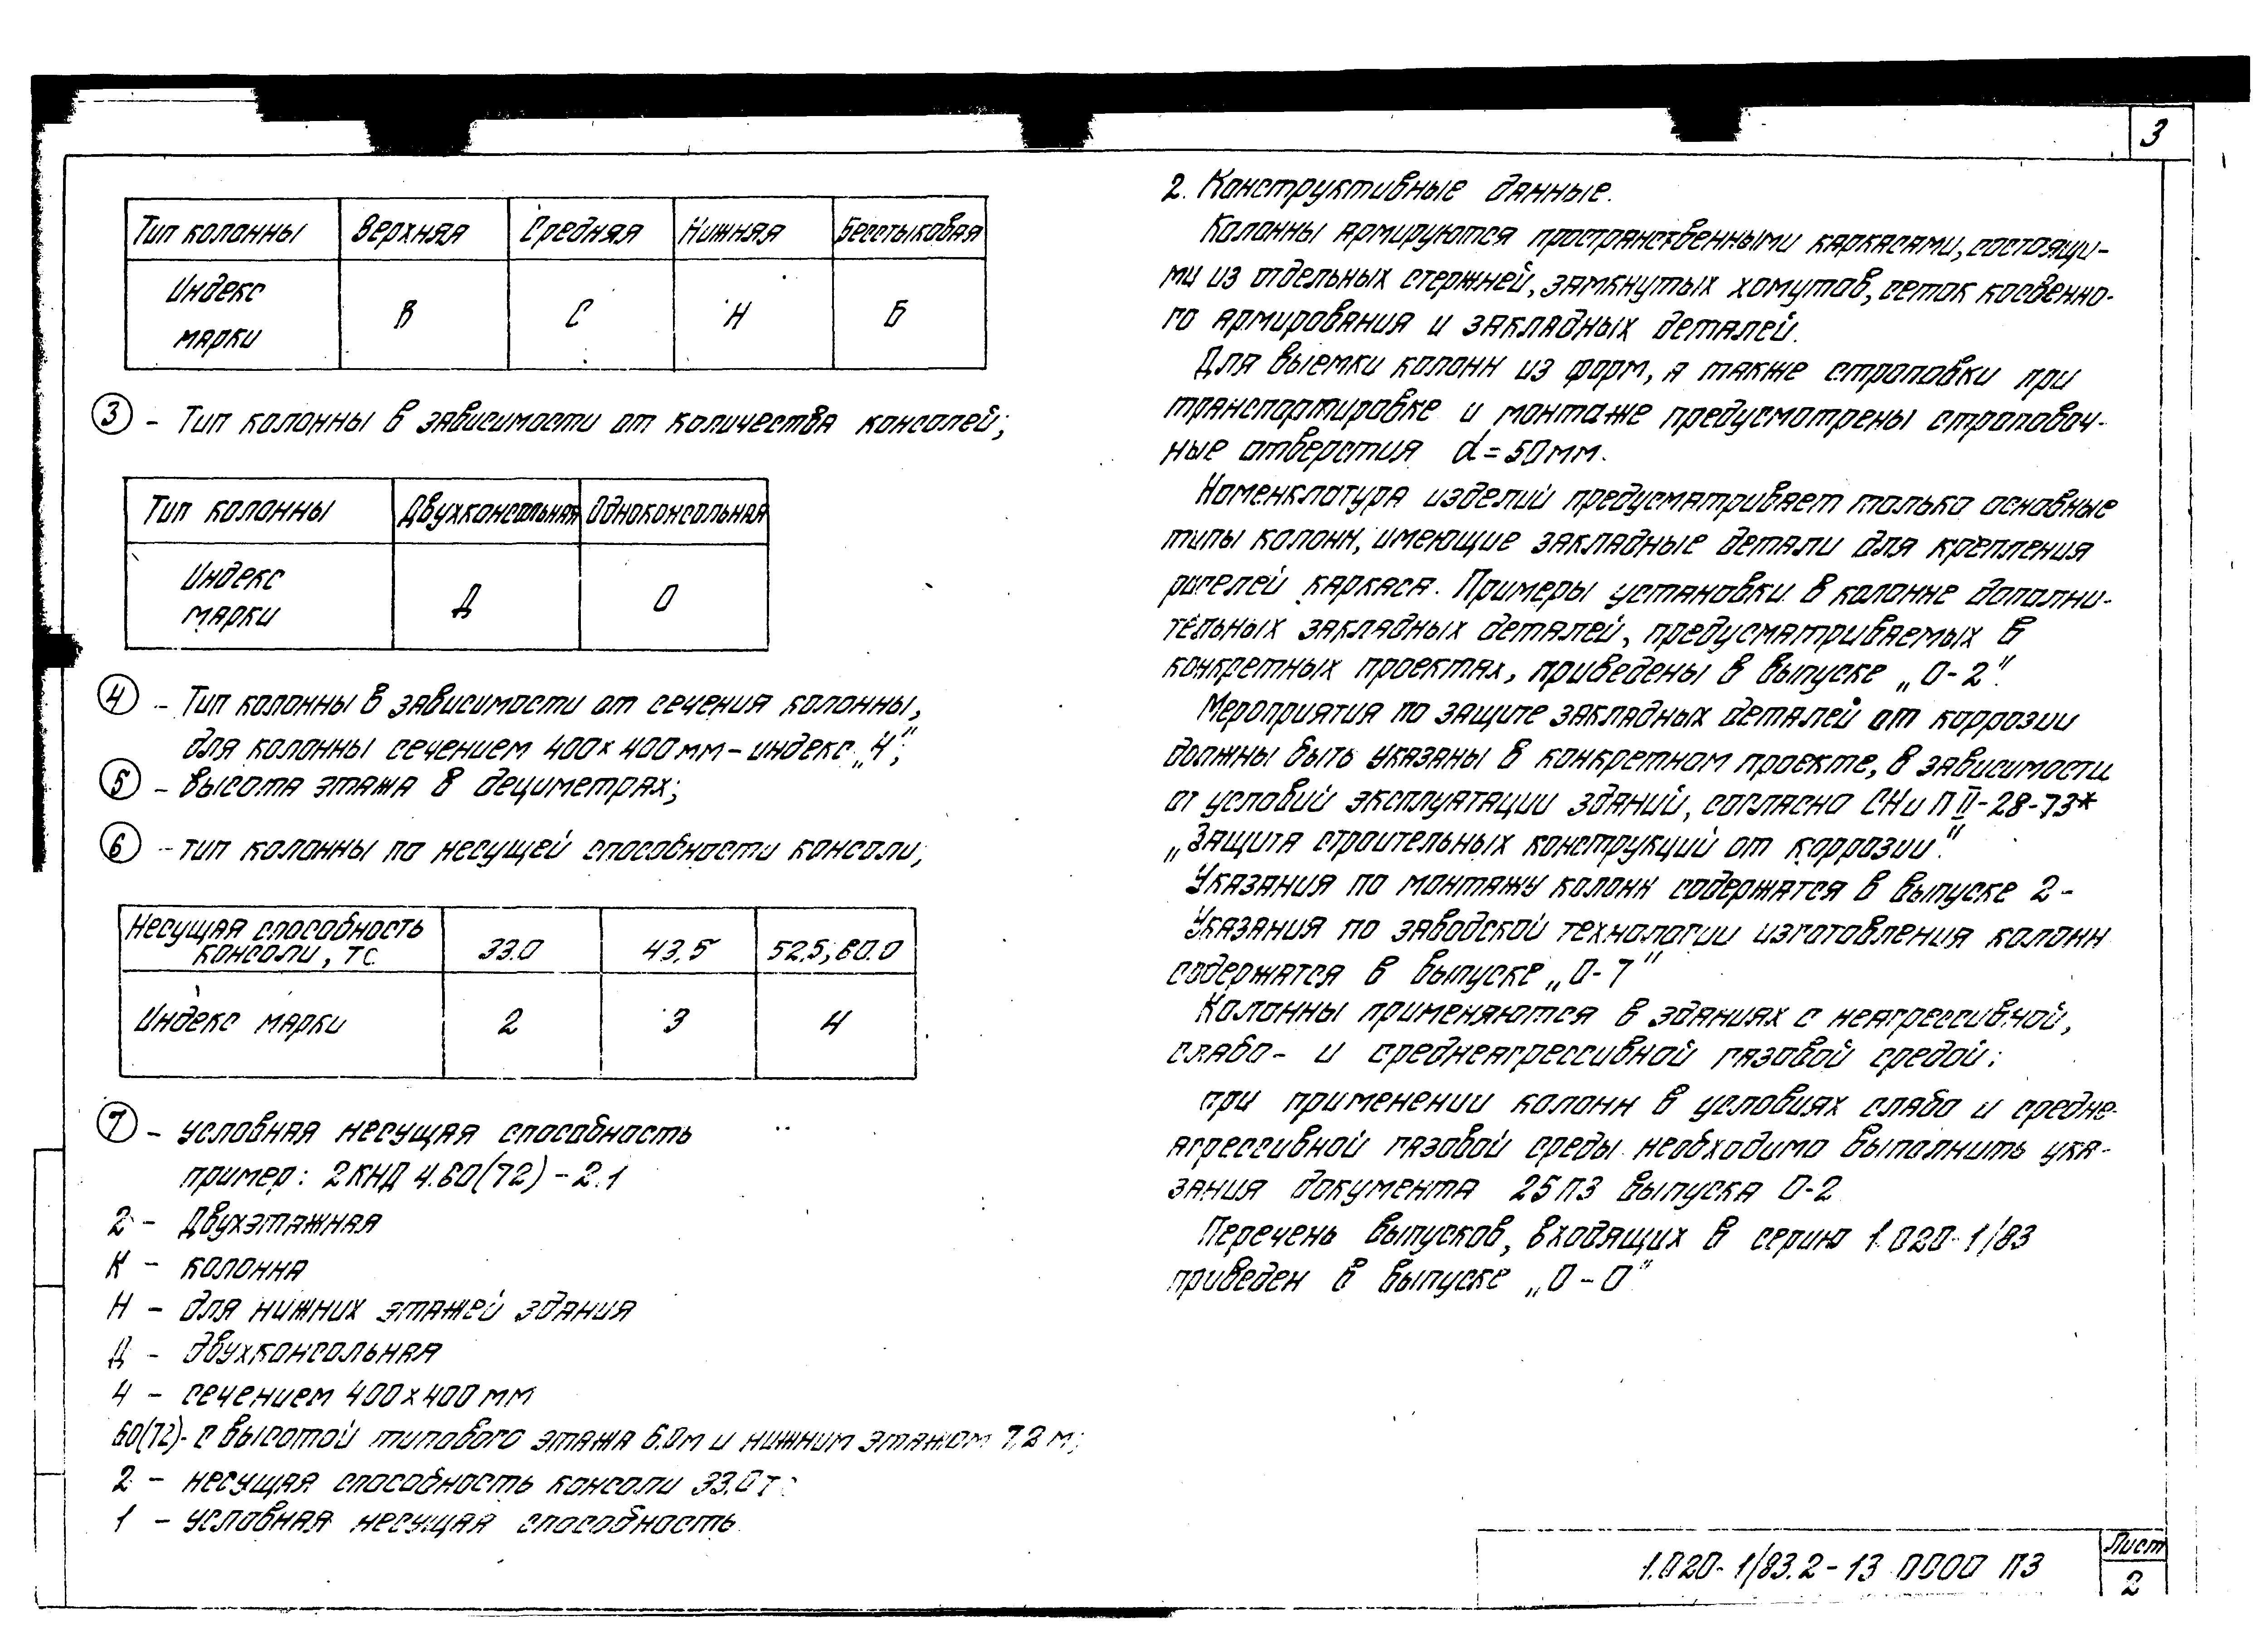 3
Тип колонны Верхняя Средняя Нижняя Бесстыковая
Индекс
марки В С Н Б
③ - Тип колонны в зависимости от количества консолей;
Тип колонны Двухконсольная Одноконсольная
Индекс
марки Д О
④ - Тип колонны в зависимости от сечения колонны,
для колонны сечением 400×400мм - индекс „4";
⑤ - высота этажа в дециметрах;
⑥ - тип колонны по несущей способности консоли;
Несущая способность
консоли, тс 33.0 43,5 52,5; 60.0
Индекс марки 2 3 4
⑦ - условная несущая способность
пример: 2КНД 4.60(72) - 2.1
2 - Двухэтажная
К - колонна
Н - для нижних этажей здания
Д - двухконсольная
4 - сечением 400×400мм
60(72)- с высотой типового этажа 6.0м и нижним этажом 7,2 м;
2 - несущая способность консоли 33.0т
1 - условная несущая способность
2. Конструктивные данные.
Колонны армируются пространственными каркасами, состоящи-
ми из отдельных стержней, замкнутых хомутов, сеток косвенно-
го армирования и закладных деталей.
Для выемки колонн из форм, а также строповки при
транспортировке и монтаже предусмотрены строповоч-
ные отверстия d=50мм.
Номенклатура изделий предусматривает только основные
типы колонн, имеющие закладные детали для крепления
ригелей каркаса. Примеры установки в колонне дополни-
тельных закладных деталей, предусматриваемых в
конкретных проектах, приведены в выпуске „0-2".
Мероприятия по защите закладных деталей от коррозии
должны быть указаны в конкретном проекте, в зависимости
от условий эксплуатации зданий, согласно СНиП II-28-73*
„Защита строительных конструкций от коррозии."
Указания по монтажу колонн содержатся в выпуске 2-
Указания по заводской технологии изготовления колонн
содержатся в выпуске „0-7"
Колонны применяются в зданиях с неагрессивной,
слабо- и среднеагрессивной газовой средой:
при применении колонн в условиях слабо и средне-
агрессивной газовой среды необходимо выполнить ука-
зания документа 25ПЗ выпуска 0-2
Перечень выпусков, входящих в серию 1.020-1/83
приведен в выпуске „0-0"
1.020-1/83.2-13 0000 ПЗ
Лист
2